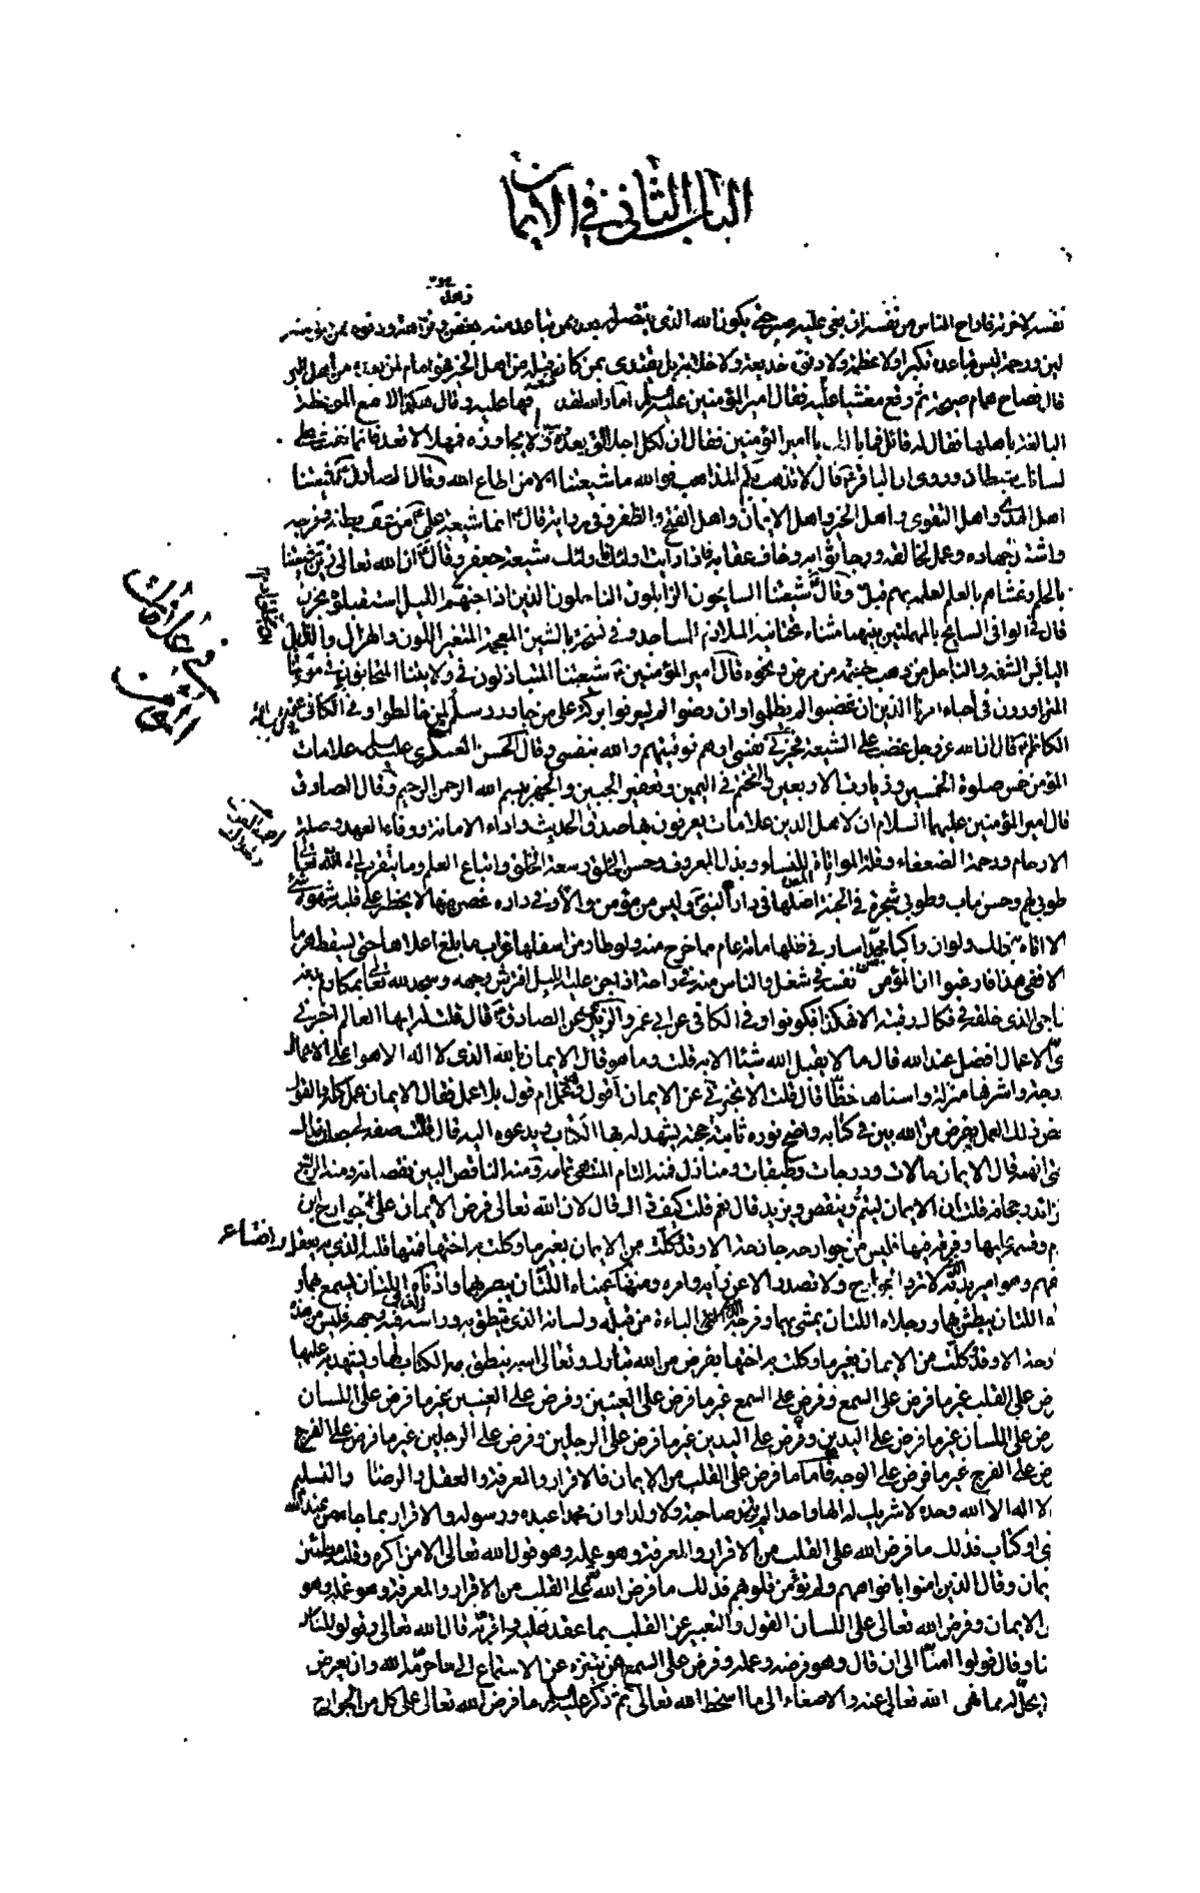 الباب الثانى فى الايمان
نفسه لاخرته فاراح الناس من نفسه ان بغى عليه صبر حتى يكون الله الذى ينتصر له بعده عمن تباعد منه بغض ونزاهة ودنوه ممن دنى منه
لين ورحمة ليس تباعده تكبرا ولا عظمة ولا دنوه خديعة ولا خلابة بل يقتدى بمن كان قبله من اهل الخير فهو امام لمن بعده من اهل البر
قال فصاح همام صيحة ثم وقع مغشيا عليه فقال امير المؤمنين عليه السلام اما والله لقد كنت اخافها عليه وقال هكذا تصنع الموعظة
البالغة باهلها فقال له قائل فما بالك يا امير المؤمنين فقال ان لكل اجلا لن يعدوه وسببا لا يجاوزه فمهلا لا تعد فانما نفث على
لسانك شيطان وروى ان الباقر قال لا تذهب بكم المذاهب فوالله ما شيعتنا الا من اطاع الله وقال الصادق شيعتنا
اهل الهدى واهل التقوى واهل الخير واهل الايمان واهل الفتح والظفر وفى رواية قال انما شيعة على من عف بطنه وفرجه
واشتد جهاده وعمل لخالقه ورجا ثوابه وخاف عقابه فاذا رايت اولئك فاولئك شيعة جعفر وقال ان الله تعالى زين شيعتنا
بالحلم وغشاهم بالعلم لعلمه بهم قبل وقال شيعتنا السايحون الذابلون الناحلون الذين اذا جنهم الليل استقبلوه بحزن
قال فى الوافى السايح بالمهملتين بينهما مثناة تحتانية الملازم المساجد وفى نسخة بالشين المعجمة المتغير اللون والهزال والذابل
اليابس الشفه والناحل من ذهب جسمه من مرض ونحوه قال امير المؤمنين شيعتنا المتباذلون فى ولايتنا المتحابون فى مودتنا
المتزاورون فى احياء امرنا الذين ان غضبوا لم يظلموا وان رضوا لم يسرفوا بركة على من جاوروا سلم لمن خالطوا وفى الكافى عن
الكاظم قال ان الله عز وجل غضب على الشيعة فخيرنى نفسى او هم فوقيتهم والله بنفسى وقال الحسن العسكرى عليه السلام علامات
المؤمن خمس صلوة الخمسين وزيارة الاربعين والتختم فى اليمين وتعفير الجبين والجهر ببسم الله الرحمن الرحيم وقال الصادق
قال امير المؤمنين عليهما السلام ان لاهل الدين علامات يعرفون بها صدق الحديث واداء الامانة ووفاء العهد وصلة
الارحام ورحمة الضعفاء وقلة المواتاة للنساء وبذل المعروف وحسن الخلق وسعة الخلق واتباع العلم وما يقرب الى الله تعالى
طوبى لهم وحسن ماب وطوبى شجرة فى الجنة اصلها فى دار النبى وليس من مؤمن الا وفى داره غصن منها لا يخطر على قلبه شهوة شئ
الا اتاه به ذلك ولو ان راكبا مجدا سار فى ظلها مائة عام ما خرج منه ولو طار من اسفلها غراب ما بلغ اعلاها حتى يسقط هرما
الا ففى هذا فارغبوا ان المؤمن نفسه فى شغل والناس منه فى راحة اذا جن عليه الليل افترش وجهه وسجد لله تعالى بمكارم بدنه
يناجى الذى خلقه فى فكاك رقبته الا فهكذا فكونوا وفى الكافى عن ابى عمرو الزبيرى عن الصادق قال قلت له ايها العالم اخبرنى
اى الاعمال افضل عند الله قال ما لا يقبل الله شيئا الا به قلت وما هو قال الايمان بالله الذى لا اله الا هو اعلى الاعمال
درجة واشرفها منزلة واسناها حظا قال قلت الا تخبرنى عن الايمان اقول هو وعمل ام قول بلا عمل فقال الايمان عمل كله والقول
بعض ذلك العمل بفرض من الله بين فى كتابه واضح نوره ثابتة حجته يشهد له بها الكتاب ويدعوه اليه قال قلت صفه لى جعلت فداك
حتى افهمه قال الايمان حالات ودرجات وطبقات ومنازل فمنه التام المنتهى تمامه ومنه الناقص البين نقصانه ومنه الراجح
الزائد رجحانه قلت ان الايمان ليتم وينقص ويزيد قال نعم قلت كيف ذلك قال لان الله تعالى فرض الايمان على جوارح ابن
آدم وقسمه عليها وفرقه فيها فليس من جوارحه جارحة الا وقد وكلت من الايمان بغير ما وكلت به اختها فمنها قلبه الذى به يعقل
ويفهم وهو امير بدنه الذى لا ترد الجوارح ولا تصدر الا عن رايه وامره ومنها عيناه اللتان يبصر بهما واذناه اللتان يسمع بهما و
يداه اللتان يبطش بهما ورجلاه اللتان يمشى بهما وفرجه الذى الباءة من قبله ولسانه الذى ينطق به وراسه الذى فيه وجهه فليس من هذه
جارحة الا وقد وكلت من الايمان بغير ما وكلت به اختها بفرض من الله تبارك وتعالى اسمه ينطق به الكتاب لها ويشهد به عليها
فرض على القلب غير ما فرض على السمع وفرض على السمع غير ما فرض على العينين وفرض على العينين غير ما فرض على اللسان
وفرض على اللسان غير ما فرض على اليدين وفرض على اليدين غير ما فرض على الرجلين وفرض على الرجلين غير ما فرض على الفرج
وفرض على الفرج غير ما فرض على الوجه فاما ما فرض على القلب من الايمان فالاقرار والمعرفة والعقل والرضا والتسليم
لا اله الا الله وحده لا شريك له الها واحدا لم يتخذ صاحبة ولا ولدا وان محمدا عبده ورسوله والاقرار بما جاء من عند الله
نبى او كتاب فذلك ما فرض الله على القلب من الاقرار والمعرفة وهو عمله وهو قول الله تعالى الا من اكره وقلبه مطمئن
بالايمان وقال الذين امنوا بافواههم ولم تؤمن قلوبهم فذلك ما فرض الله على القلب من الاقرار والمعرفة وهو عمله وهو
راس الايمان وفرض الله تعالى على اللسان القول والتعبير عن القلب بما عقد عليه واقر به قال الله تعالى وقولوا للناس
حسنا وقال قولوا امنا الى ان قال وهو فرضه وعمله وفرض على السمع ان يتنزه عن الاستماع الى ما حرم الله وان يعرض
عما لا يحل له مما نهى الله تعالى عنه والاصغاء الى ما اسخط الله تعالى ثم ذكر عليه السلام ما فرض الله تعالى على كل من الجوارح